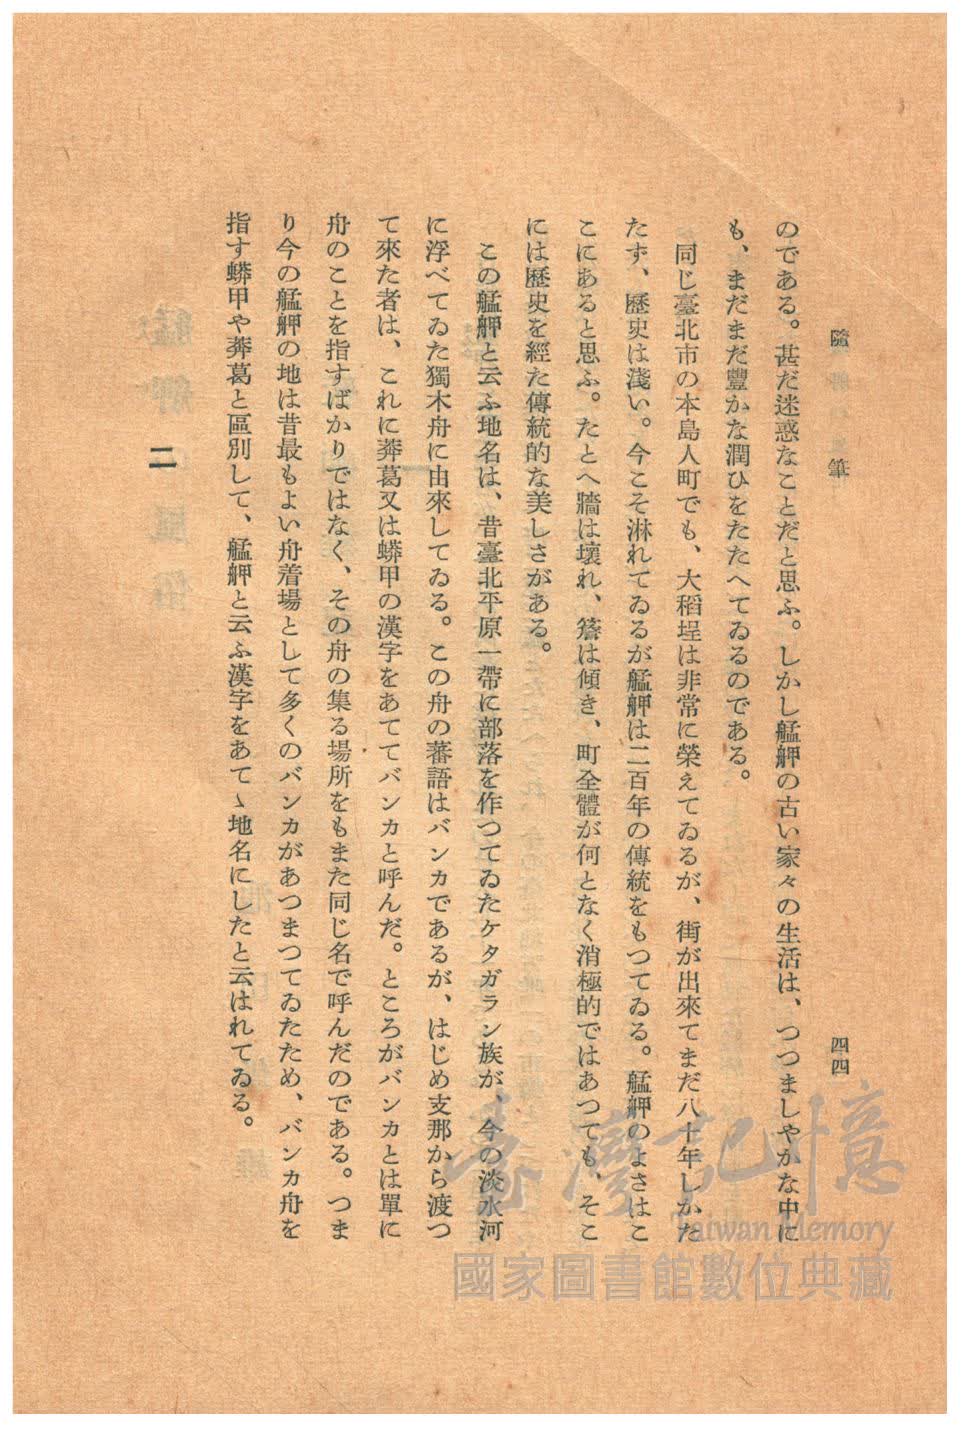 隨筆
四四
のである。甚だ迷惑なことだと思ふ。しかし艋舺の古い家々の生活は、つつましやかな中に
も、まだまだ豐かな潤ひをたたへてゐるのである。
同じ臺北市の本島人町でも、大稻埕は非常に榮えてゐるが、街が出來てまだ八十年しかた
たず、歷史は淺い。今こそ淋れてゐるが艋舺は二百年の傳統をもつてゐる。艋舺のよさはこ
こにあると思ふ。たとへ牆は壞れ、簷は傾き、町全體が何となく消極的ではあつても、そこ
には歷史を經た傳統的な美しさがある。
この艋舺と云ふ地名は、昔臺北平原一帶に部落を作つてゐたケタガラン族が、今の淡水河
に浮べてゐた獨木舟に由來してゐる。この舟の蕃語はバンカであるが、はじめ支那から渡つ
て來た者は、これに莾葛又は蟒甲の漢字をあててバンカと呼んだ。ところがバンカとは單に
舟のことを指すばかりではなく、その舟の集る場所をもまた同じ名で呼んだのである。つま
り今の艋舺の地は昔最もよい舟着場として多くのバンカがあつまつてゐたため、バンカ舟を
指す蟒甲や莾葛と區別して、艋舺と云ふ漢字をあてゝ地名にしたと云はれてゐる。
二
臺灣記憶
Taiwan Memory
國家圖書館數位典藏